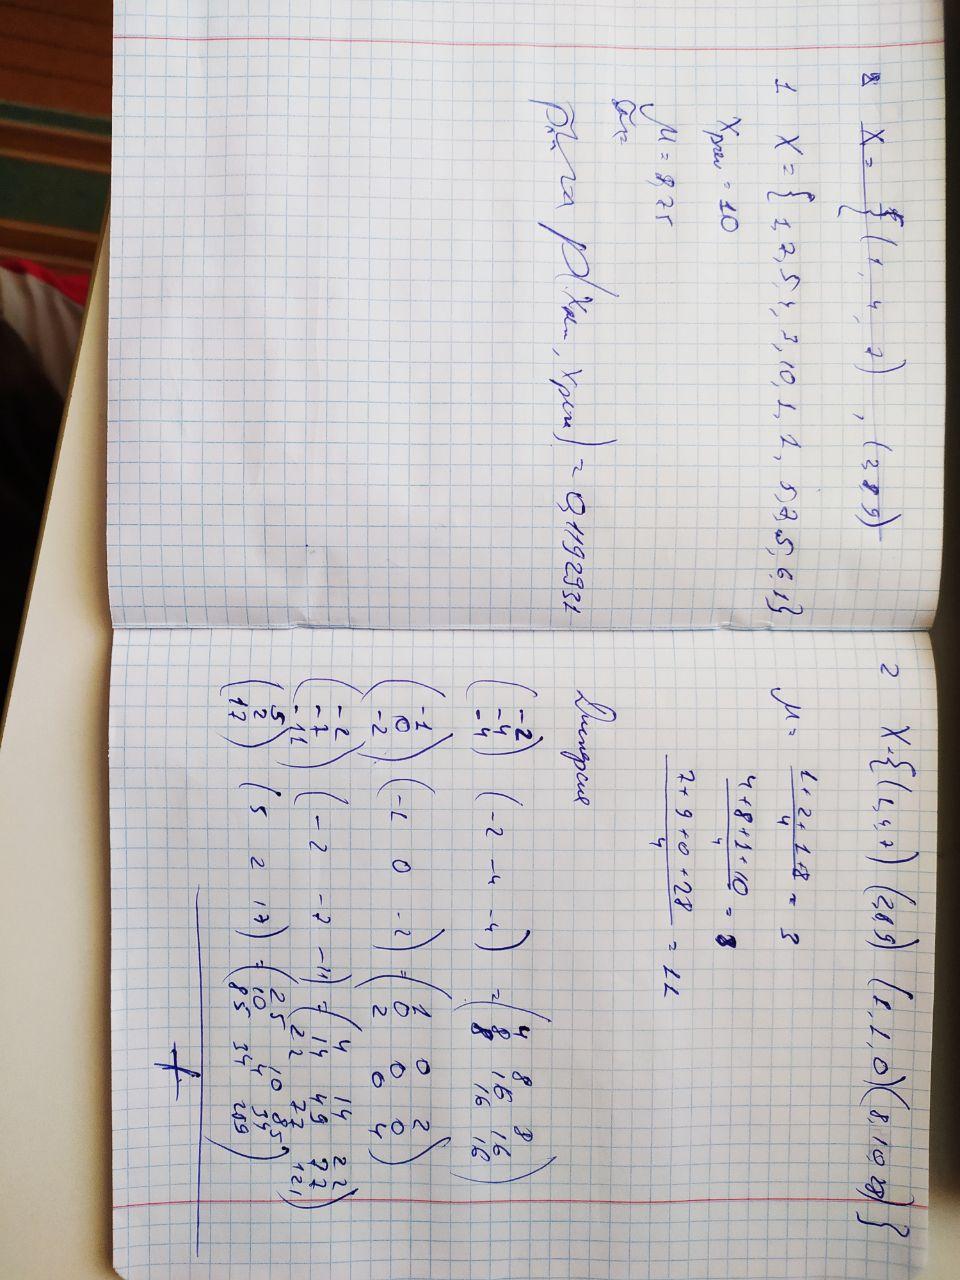 X = { (1, 4, 7), (2, 8, 9)
1 X = { 1, 7, 5, 4, 3, 10, 1, 1, 5, 7, 5, 6, 1 }
= 10
μ = 8,75
= 0,1192931
2 X = { (1, 4, 7) (2, 8, 9) (1, 1, 0) (8, 10, 28) }
μ = 1 + 2 + 1 + 8 / 4 = 3
4 + 8 + 1 + 10 / 4 = 8
7 + 9 + 0 + 28 / 4 = 11
Дисперсия
( -2 -4 -4 ) ( -2 -4 -4 ) = ( 4 8 8 8 16 16 8 16 16 )
( -1 0 -2 ) ( -1 0 -2 ) = ( 1 0 2 0 0 0 2 0 4 )
( -2 -7 -11 ) ( -2 -7 -11 ) = ( 4 14 22 14 49 77 22 77 121 )
( 5 2 17 ) ( 5 2 17 ) = ( 25 10 85 10 4 34 85 34 289 )
+